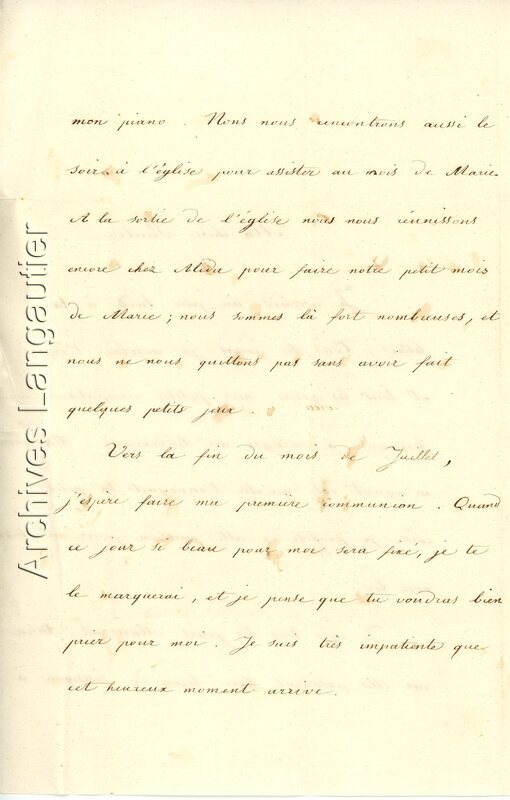 mon piano. Nous nous rencontrons aussi le
soir à l'église pour assister au mois de Marie.
A la sortie de l'église nous nous réunissons
encore chez Alida pour faire notre petit mois
de Marie ; nous sommes là fort nombreuses, et
nous ne nous quittons pas sans avoir fait
quelques petits jeux.
Vers la fin du mois de Juillet,
j'espère faire ma première communion. Quand
ce jour si beau pour moi sera fixé, je te
le marquerai, et je pense que tu voudras bien
prier pour moi. Je suis très impatiente que
cet heureux moment arrive.
Archives Langautier